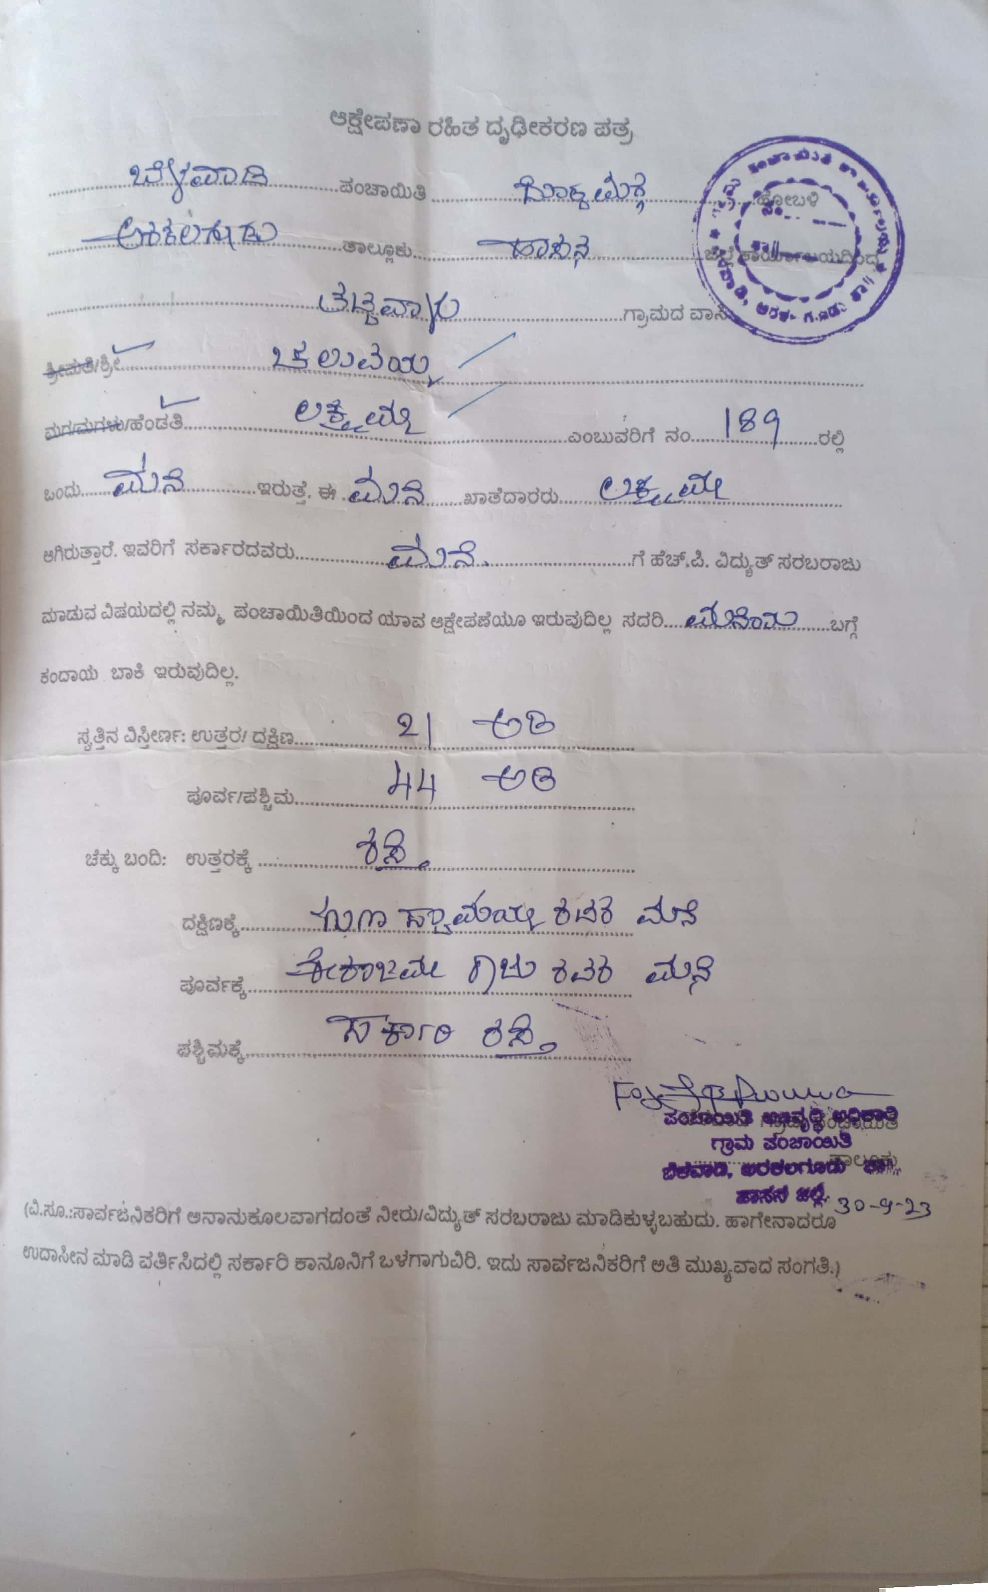 ಆಕ್ಷೇಪಣಾ ರಹಿತ ದೃಢೀಕರಣ ಪತ್ರ
ಬೈಚವಾಡಿ ಪಂಚಾಯಿತಿ ದೊಡ್ಡಮಗ್ಗೆ ಹೋಬಳಿ
ಅರಕಲಗೂಡು ತಾಲ್ಲೂಕು ಹಾಸನ ಜಿಲ್ಲೆ ಕಾರ್ಯಾಲಯದಿಂದ
ಗ್ರಾಮದ ವಾಸಿ
ಶ್ರೀಮತಿ/ಶ್ರೀ ಚಲುವಯ್ಯ
ಮಗ/ಮಗಳು/ಹೆಂಡತಿ ಲಕ್ಷ್ಮಮ್ಮ ಎಂಬುವರಿಗೆ ನಂ 189 ರಲ್ಲಿ
ಒಂದು ಮನೆ ಇರುತ್ತೆ. ಈ ಮನೆ ಖಾತೆದಾರರು ಲಕ್ಷ್ಮಮ್ಮ
ಆಗಿರುತ್ತಾರೆ. ಇವರಿಗೆ ಸರ್ಕಾರದವರು ಮನೆ ಗೆ ಹೆಚ್.ಪಿ. ವಿದ್ಯುತ್ ಸರಬರಾಜು
ಮಾಡುವ ವಿಷಯದಲ್ಲಿ ನಮ್ಮ ಪಂಚಾಯಿತಿಯಿಂದ ಯಾವ ಆಕ್ಷೇಪಣೆಯೂ ಇರುವುದಿಲ್ಲ ಸದರಿ ಮನೆಯ ಬಗ್ಗೆ
ಕಂದಾಯ ಬಾಕಿ ಇರುವುದಿಲ್ಲ.
ಸ್ವತ್ತಿನ ವಿಸ್ತೀರ್ಣ: ಉತ್ತರ/ ದಕ್ಷಿಣ 21 ಅಡಿ
ಪೂರ್ವ/ಪಶ್ಚಿಮ 44 ಅಡಿ
ಚೆಕ್ಕು ಬಂದಿ: ಉತ್ತರಕ್ಕೆ ರಸ್ತೆ
ದಕ್ಷಿಣಕ್ಕೆ ರವರ ಮನೆ
ಪೂರ್ವಕ್ಕೆ ರಾಜು ರವರ ಮನೆ
ಪಶ್ಚಿಮಕ್ಕೆ ಸರ್ಕಾರಿ ರಸ್ತೆ
ಪಂಚಾಯಿತಿ ಅಭಿವೃದ್ಧಿ ಅಧಿಕಾರಿ
ಗ್ರಾಮ ಪಂಚಾಯಿತಿ
ಅರಕಲಗೂಡು ತಾ||
ಹಾಸನ ಜಿಲ್ಲೆ. 30-9-23
(ವಿ.ಸೂ.:ಸಾರ್ವಜನಿಕರಿಗೆ ಅನಾನುಕೂಲವಾಗದಂತೆ ನೀರು/ವಿದ್ಯುತ್ ಸರಬರಾಜು ಮಾಡಿಕುಳ್ಳಬಹುದು. ಹಾಗೇನಾದರೂ
ಉದಾಸೀನ ಮಾಡಿ ವರ್ತಿಸಿದಲ್ಲಿ ಸರ್ಕಾರಿ ಕಾನೂನಿಗೆ ಒಳಗಾಗುವಿರಿ. ಇದು ಸಾರ್ವಜನಿಕರಿಗೆ ಅತಿ ಮುಖ್ಯವಾದ ಸಂಗತಿ.)